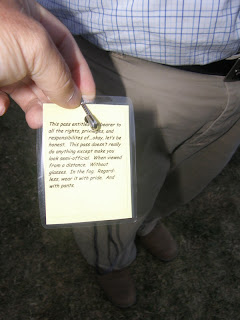 This pass entitles wearer to
all the rights, privileges, and
responsibilites of...okay, let's be
honest. This pass doesn't really
do anything except make you
look semi-official. When viewed
from a distance. Without
glasses. In the fog. Regard-
less, wear it with pride. And
with pants.